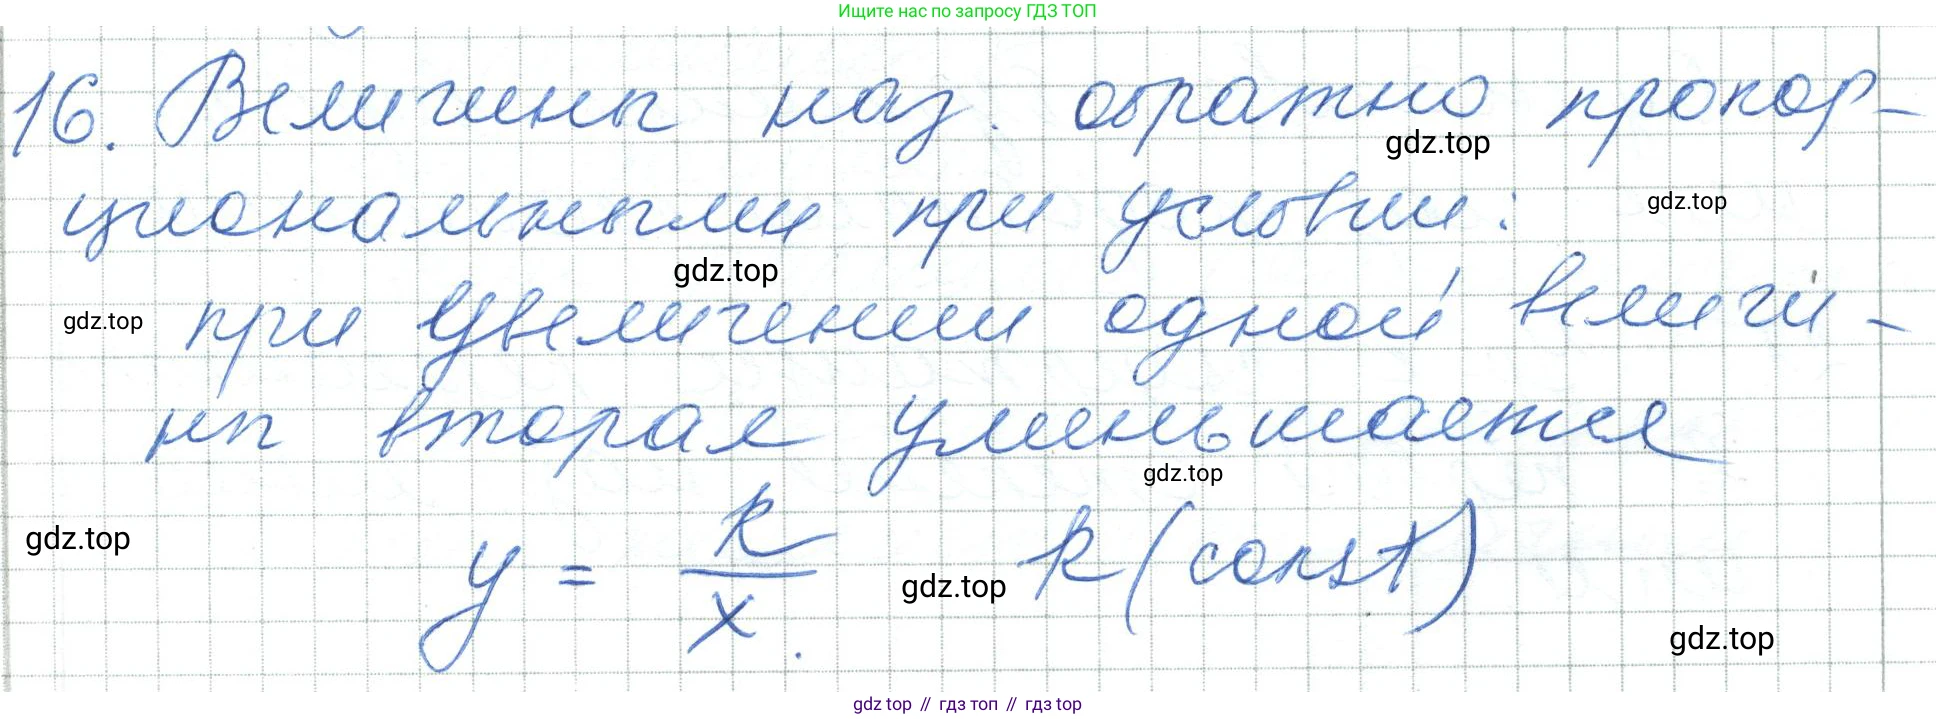 Ищите нас по запросу ГДЗ ТОП
16. Величины наз. обратно пропор-
gdz.top
циональными при условии:
gdz.top
gdz.top
при увеличении одной величи-
gdz.top
ны вторая уменьшается
gdz.top
gdz.top
y = k/x. k (const)
gdz.top
gdz.top
gdz top // гдз топ // гдз top